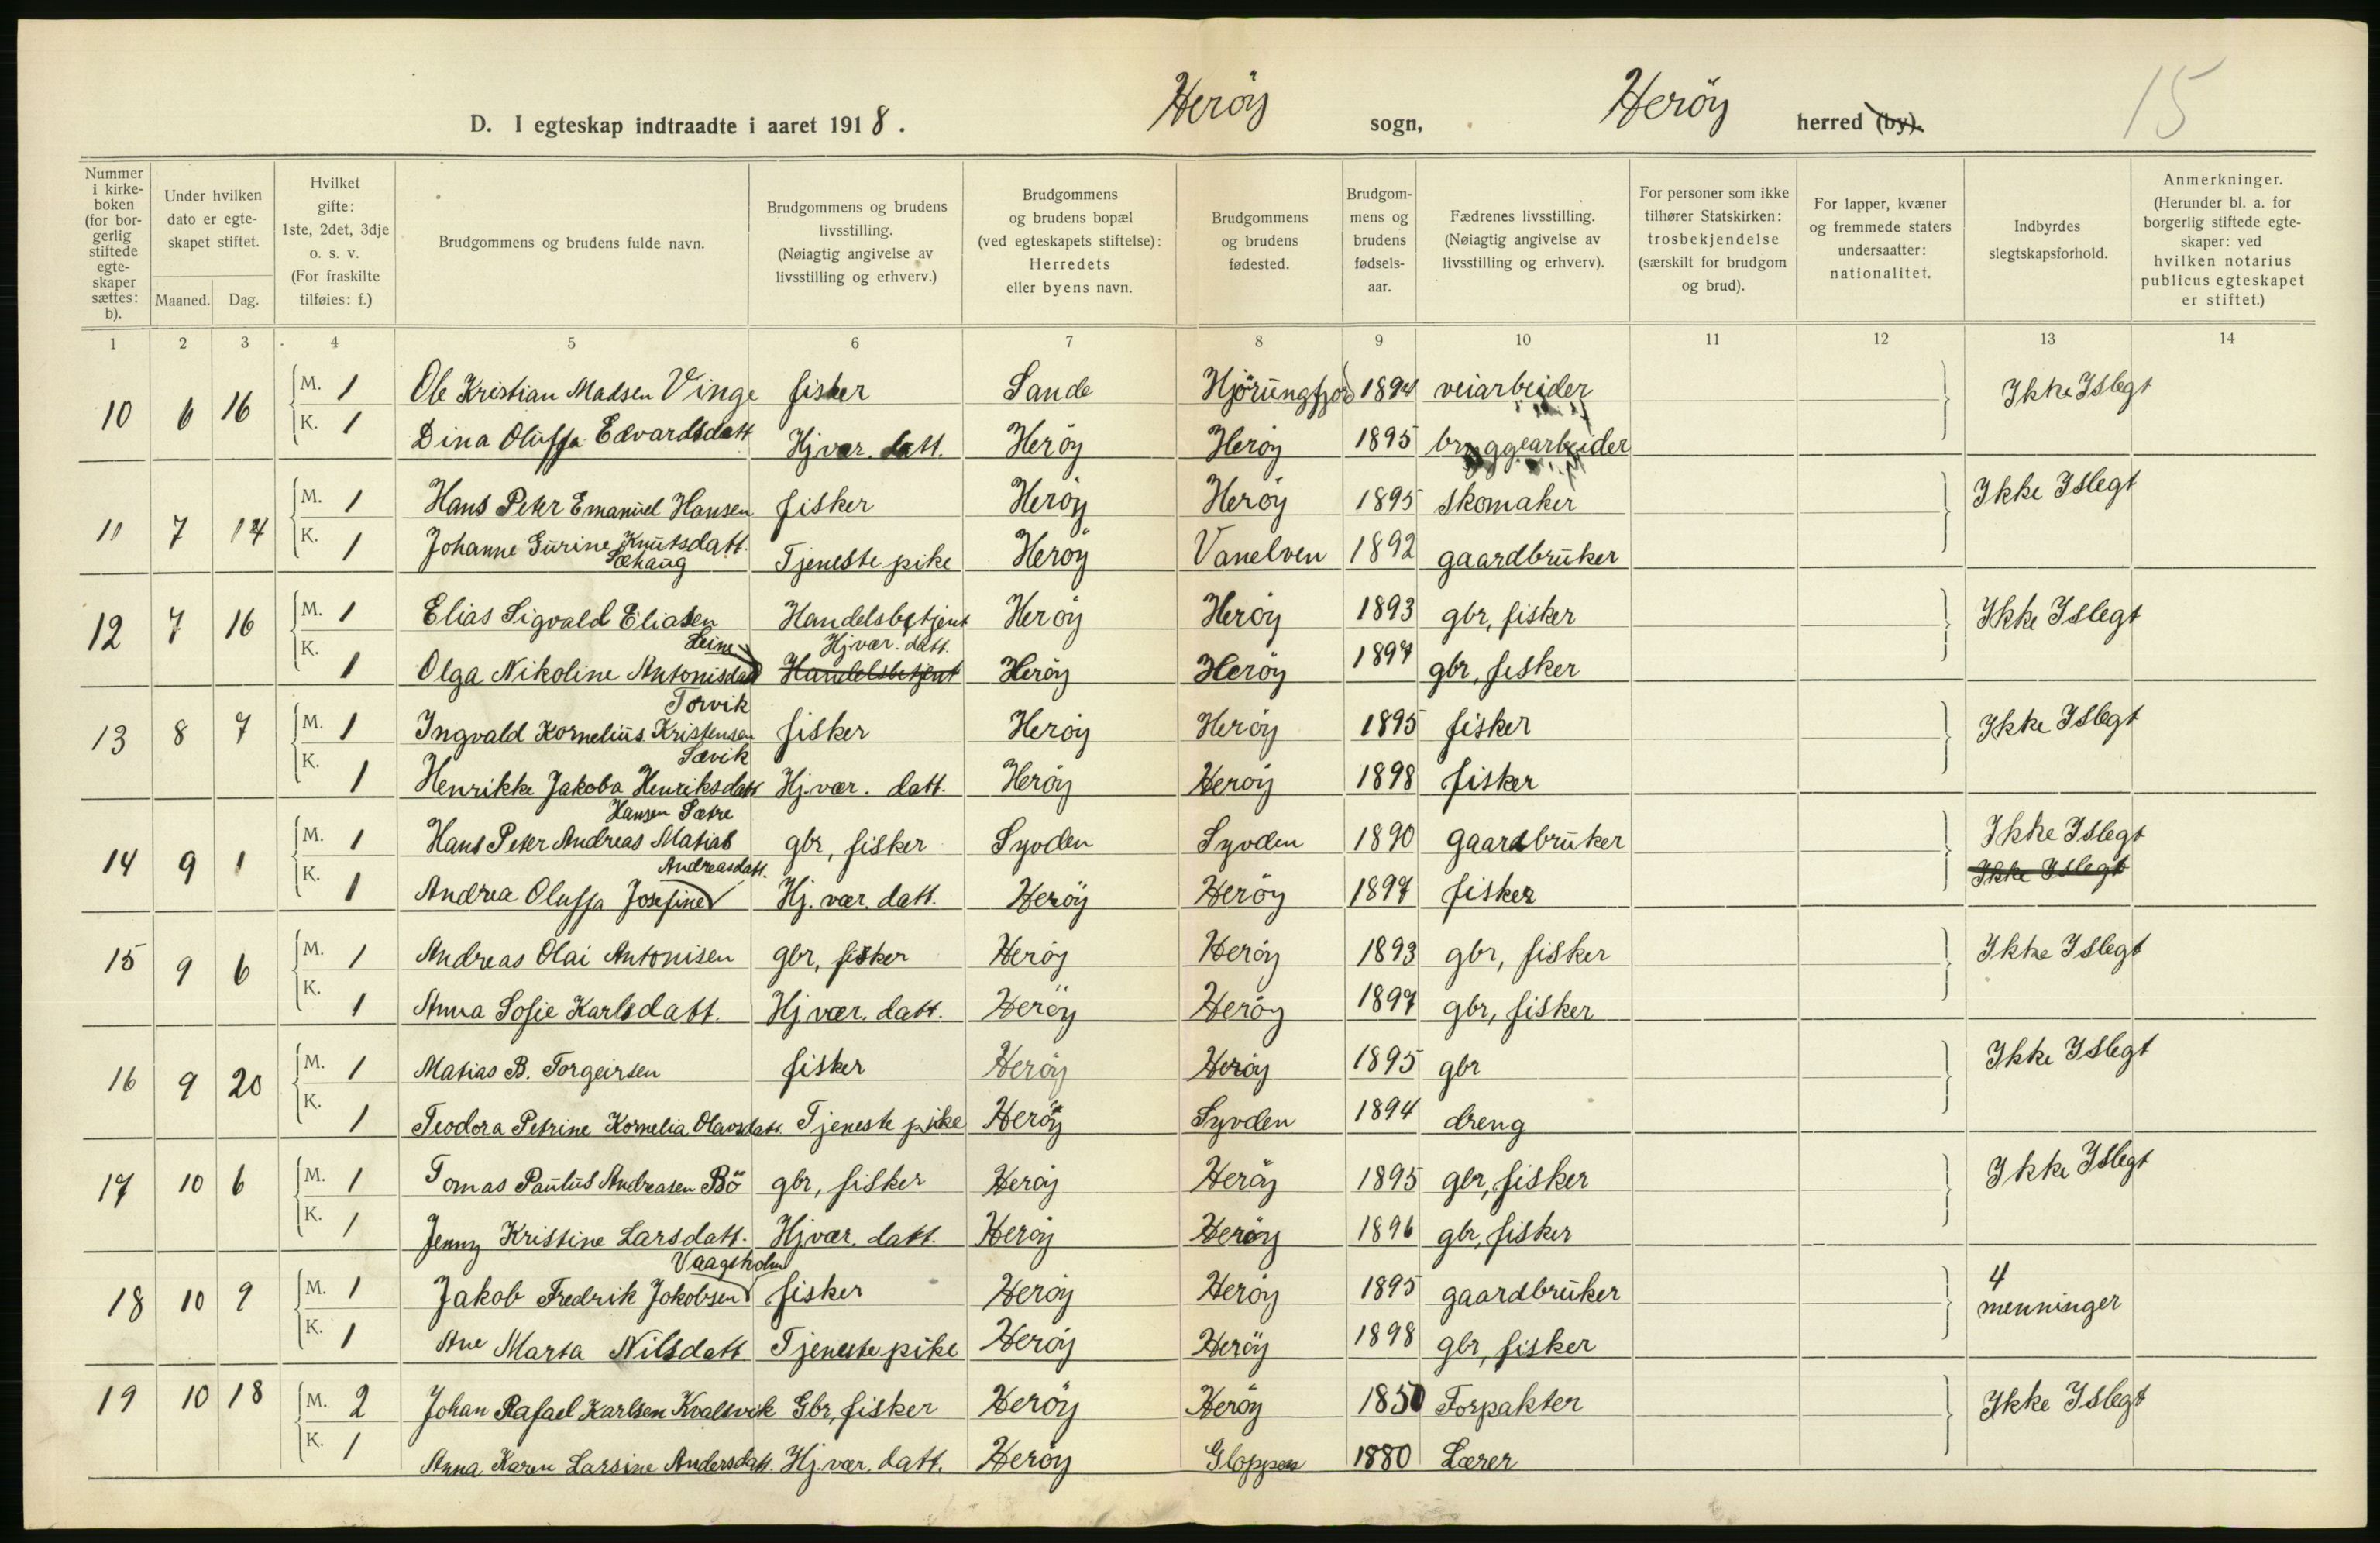 D. I egteskap indtraadte i aaret 1918. Heröy sogn, Heröy herred (by). 15
Nummer i kirke-boken (for bor-gerlig stiftede egte-skaper sættes: b).
Under hvilken dato er egte-skapet stiftet. Maaned. Dag.
Hvilket gifte: 1ste, 2det, 3dje o. s. v. (For fraskilte tilføies: f.)
Brudgommens og brudens fulde navn.
Brudgommens og brudens livsstilling. (Nøiagtig angivelse av livsstilling og erhverv.)
Brudgommens og brudens bopæl (ved egteskapets stiftelse): Herredets eller byens navn.
Brudgommens og brudens fødested.
Brudgom-mens og brudens fødsels-aar.
Fædrenes livsstilling. (Nøiagtig angivelse av livsstilling og erhverv).
For personer som ikke tilhører Statskirken: trosbekjendelse (særskilt for brudgom og brud).
For lapper, kvæner og fremmede staters undersaatter: nationalitet.
Indbyrdes slegtskapsforhold.
Anmerkninger. (Herunder bl. a. for borgerlig stiftede egte-skaper: ved hvilken notarius publicus egteskapet er stiftet.)
1 2 3 4 5 6 7 8 9 10 11 12 13 14
10 6 16 M. 1 Ole Kristian Madsen Vinge fisker Sande Hjörungfjord 1894 veiarbeider Ikke Islegt
K. 1 Dina Oluffa Edvardsdatt Hj. vær. datt. Heröy Heröy 1895 bryggearbeider
11 7 14 M. 1 Hans Peter Emanuel Hansen fisker Heröy Heröy 1895 skomaker Ikke Islegt
K. 1 Johanne Gurine Knutsdatt. Sæhaug Tjeneste pike Heröy Vanelven 1892 gaardbruker
12 7 16 M. 1 Elias Sigvald Eliasen Handelsbetjent Heröy Heröy 1893 gbr, fisker Ikke Islegt
K. 1 Olga Nikoline Antonisdatt Leine Hj. vær. datt. Handelsbetjent Heröy Heröy 1897 gbr, fisker
13 8 7 M. 1 Ingvald Kornelius Kristensen Torvik fisker Heröy Heröy 1895 fisker Ikke Islegt
K. 1 Henrikke Jakoba Henriksdatt Sævik Hj. vær. datt. Heröy Heröy 1898 fisker
14 9 1 M. 1 Hans Peter Andreas Matias Hansen Sætre gbr, fisker Syvden Syvden 1890 gaardbruker Ikke Islegt
K. 1 Andrea Oluffa Josefine Andreasdatt. Hj. vær. datt. Heröy Heröy 1897 fisker Ikke Islegt
15 9 6 M. 1 Andreas Olai Antonisen gbr, fisker Heröy Heröy 1893 gbr, fisker Ikke Islegt
K. 1 Anna Sofie Karlsdatt. Hj. vær. datt. Heröy Heröy 1897 gbr, fisker
16 9 20 M. 1 Matias B. Torgeirsen fisker Heröy Heröy 1895 gbr Ikke Islegt
K. 1 Teodora Petrine Kornelia Olavsdatt. Tjeneste pike Heröy Syvden 1894 dreng
17 10 6 M. 1 Tomas Paulus Andreasen Bö gbr, fisker Heröy Heröy 1895 gbr, fisker Ikke Islegt
K. 1 Jenny Kristine Larsdatt. Hj. vær. datt. Heröy Heröy 1896 gbr, fisker
18 10 9 M. 1 Jakob Fredrik Jakobsen Vaagsholm fisker Heröy Heröy 1895 gaardbruker 4 menninger
K. 1 Ane Marta Nilsdatt Tjeneste pike Heröy Heröy 1898 gbr, fisker
19 10 18 M. 2 Johan Rafael Karlsen Kvalsvik Gbr, fisker Heröy Heröy 1850 Forpakter Ikke Islegt
K. 1 Anna Karen Larsine Andersdatt. Hj. vær. datt. Heröy Gloppen 1880 Lærer